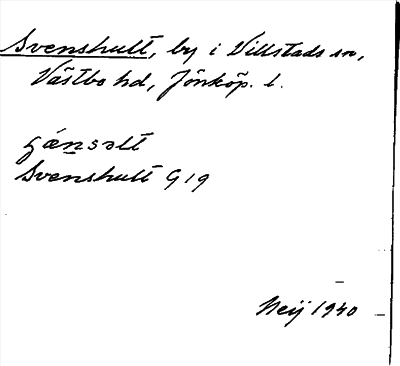 Svenshult, by i Villstads sn,
Västbo hd, Jönköp. l.
Svenshult G 19
Neij 1940